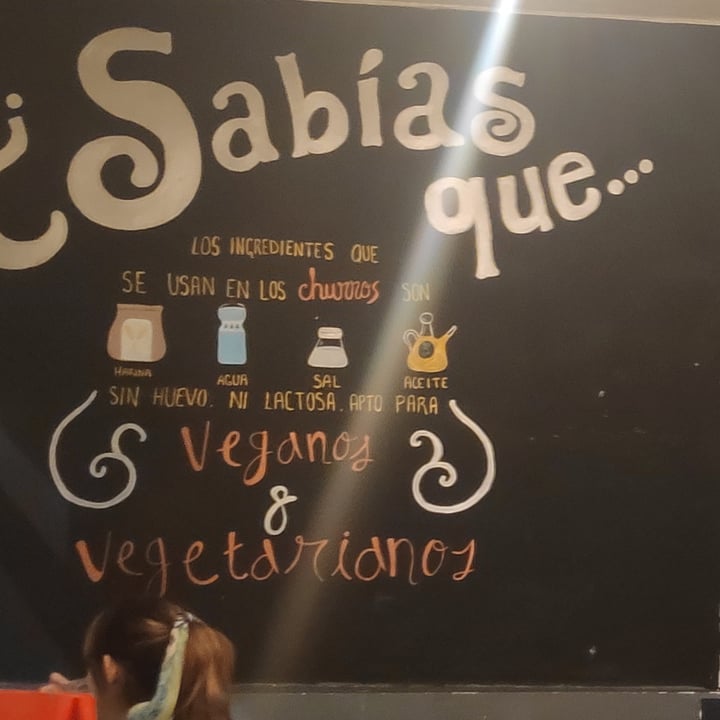 ¿Sabías
que...
LOS INGREDIENTES QUE
SE USAN EN LOS churros SON
HARINA AGUA SAL ACEITE
SIN HUEVO. NI LACTOSA. APTO PARA
Veganos
&
vegetarianos